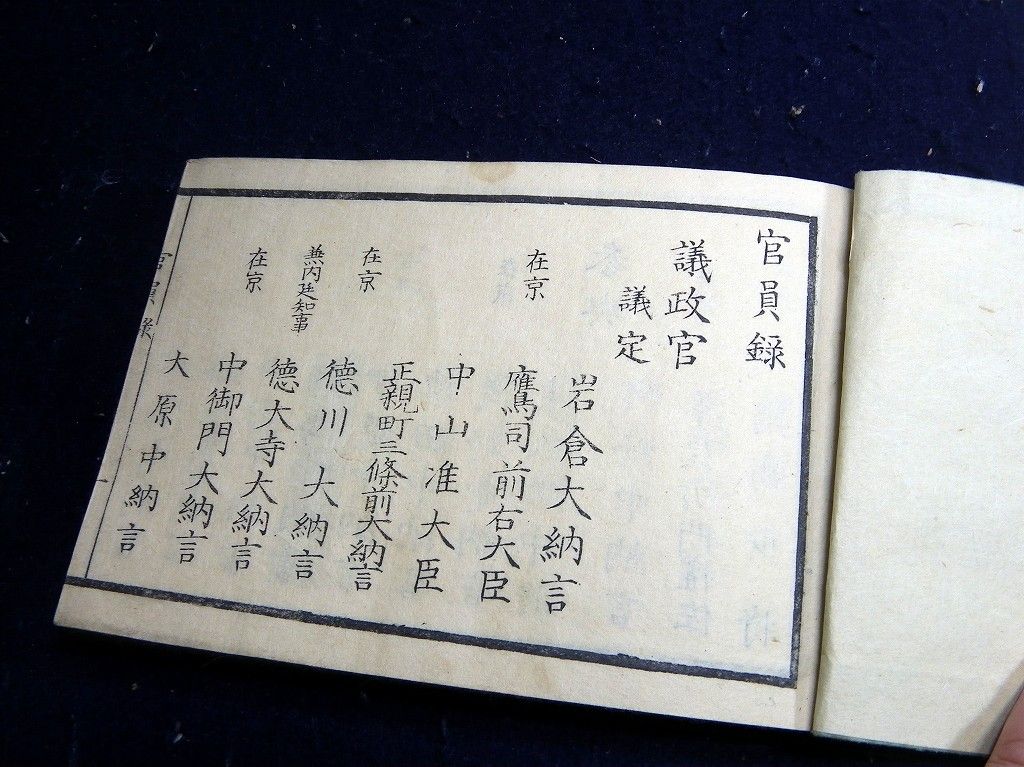 官員録
議政官
議定
岩倉大納言
在京 鷹司前右大臣
中山准大臣
正親町三條前大納言
在京 德川大納言
兼内廷知事 德大寺大納言
在京 中御門大納言
大原中納言
官員録